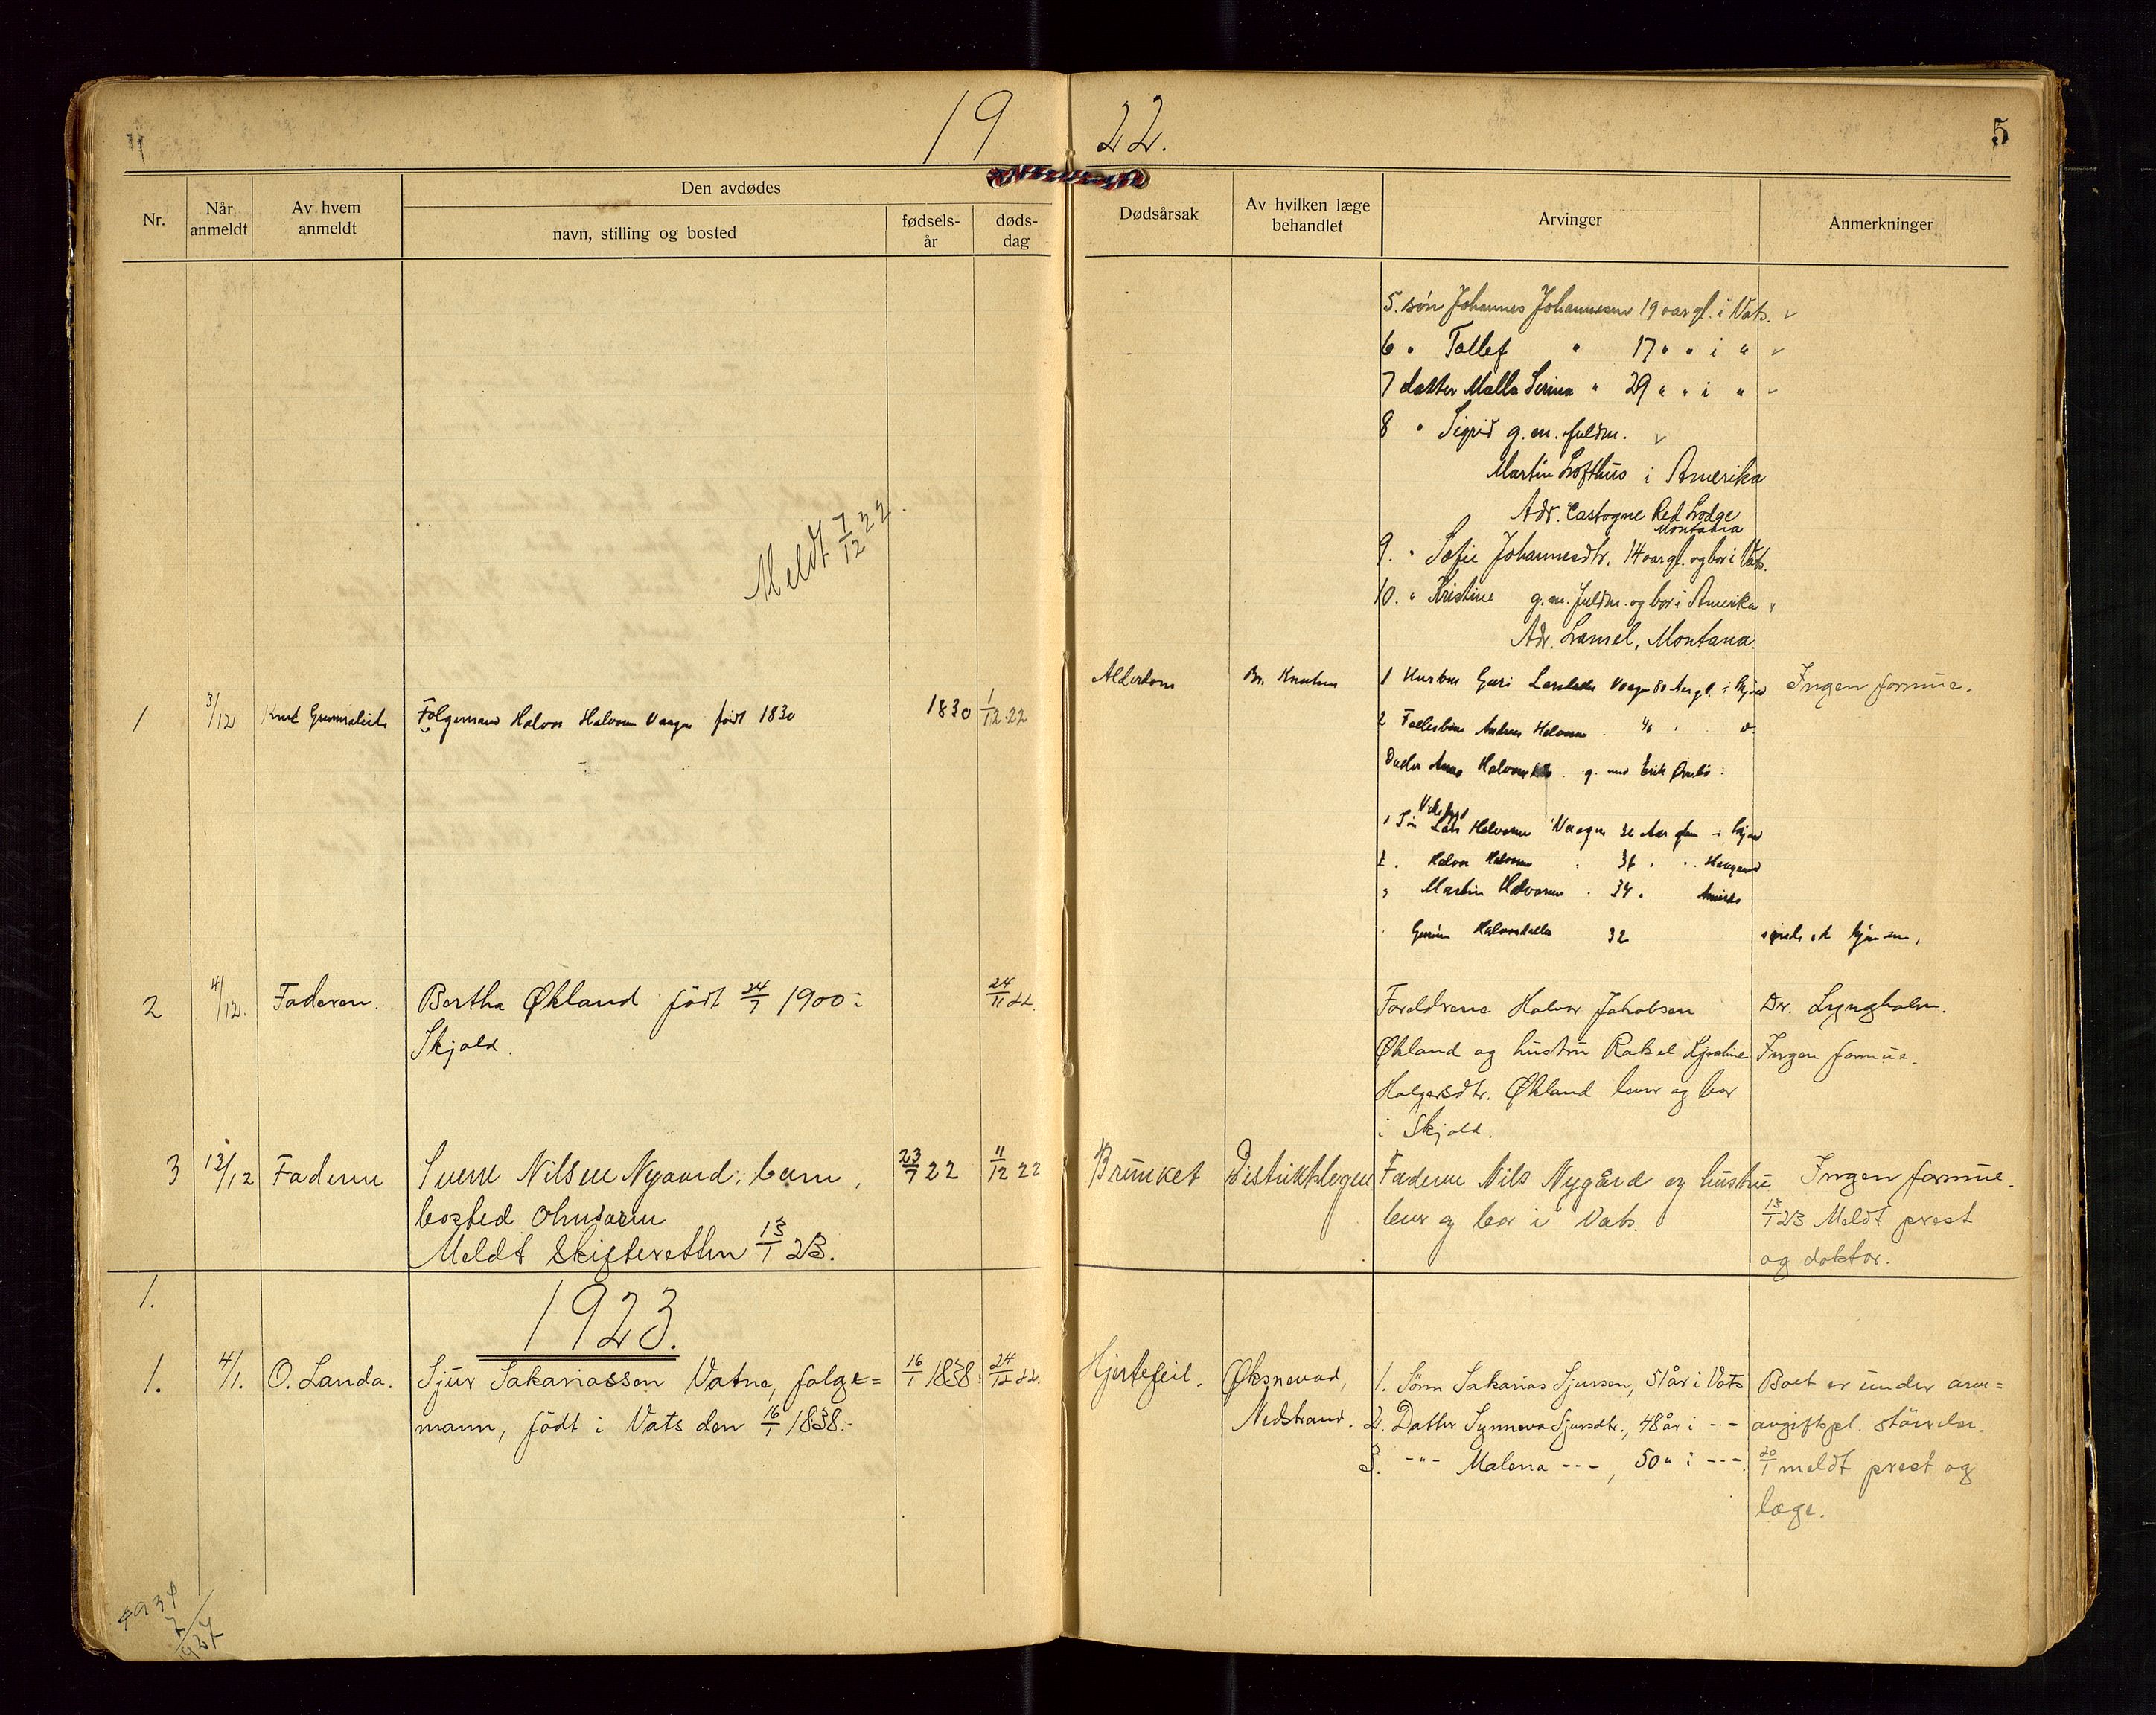 19 22.
5
Nr.
Når anmeldt
Av hvem anmeldt
Den avdødes
navn, stilling og bosted
fødsels-år
døds-dag
Dødsårsak
Av hvilken læge behandlet
Arvinger
Anmerkninger
5. søn Johannes Johannesen 19 aar gl. i Vats.
6 " Tollef " 17 " " i "
7 datter Malla Serina " 29 " " i "
8 " Sigrid g. m. fuldm.
Martin Lofthus i Amerika
Adr. Castogne Red Lodge
Montana
9. " Sofie Johannesdtr. 14 aar gl. og bor i Vats.
10. " Kristine g. m. fuldm. og bor i Amerika
Adr. Lamsel, Montana.
Meldt 7/12 22.
1 3/12 Knut Folgemand Halvor Halvorsen Vaagen født 1830 1830 1/12.22
Alderdom Dr. Knutsen 1 Hustru Guri Vaagen 80 Aar gl. i Skjold Ingen formue.
2 Andreas Halvorsen
Datter Anna g. med Erik
Vikebygd
1 Søn Lars Halvorsen Vaagen Aar i Skjold
2. Halvor Halvorsen 36
3 Martin Halvorsen . 34 .
32
2 4/12. Faderen. Bertha Økland født 24/7 1900 i 24/11 22.
Skjold.
Foreldrene Halvor Jakobsen Dr. Lyngholm.
Økland og hustru Rakel Kjestine Ingen formue.
Holgersdtr. Økland lever og bor
i Skjold.
3 12/12 Faderen Sverre Nilsen Nygaard, barn, 23/7 22 11/12 22
bosted
Meldt Skifteretten 13/1 23.
Distriktslegen Faderen Nils Nygård og hustru Ingen formue.
lever og bor i Vats. 13/1 23 Meldt prest
og doktor.
1.
1923.
1. 4/1. O. Landa. Sjur Sakariassen Vatne, folge= 16/1 1838 24/12 22.
mann, født i Vats den 16/1 1838.
Hjertefeil. Øksnevad, 1. Sønn Sakarias Sjursen, 51 år i Vats Boet er under arve=
Nedstrand. 2. Datter Synneva Sjursdtr., 48 år i -- avgiftspl. størrelse.
3. -"- Malena ---, 50 " i ---. 20/1 meldt prest og
læge.